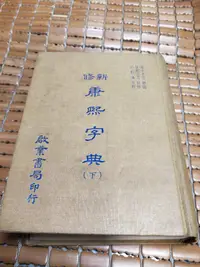 新修
康熙字典
(下)
啟業書局印行